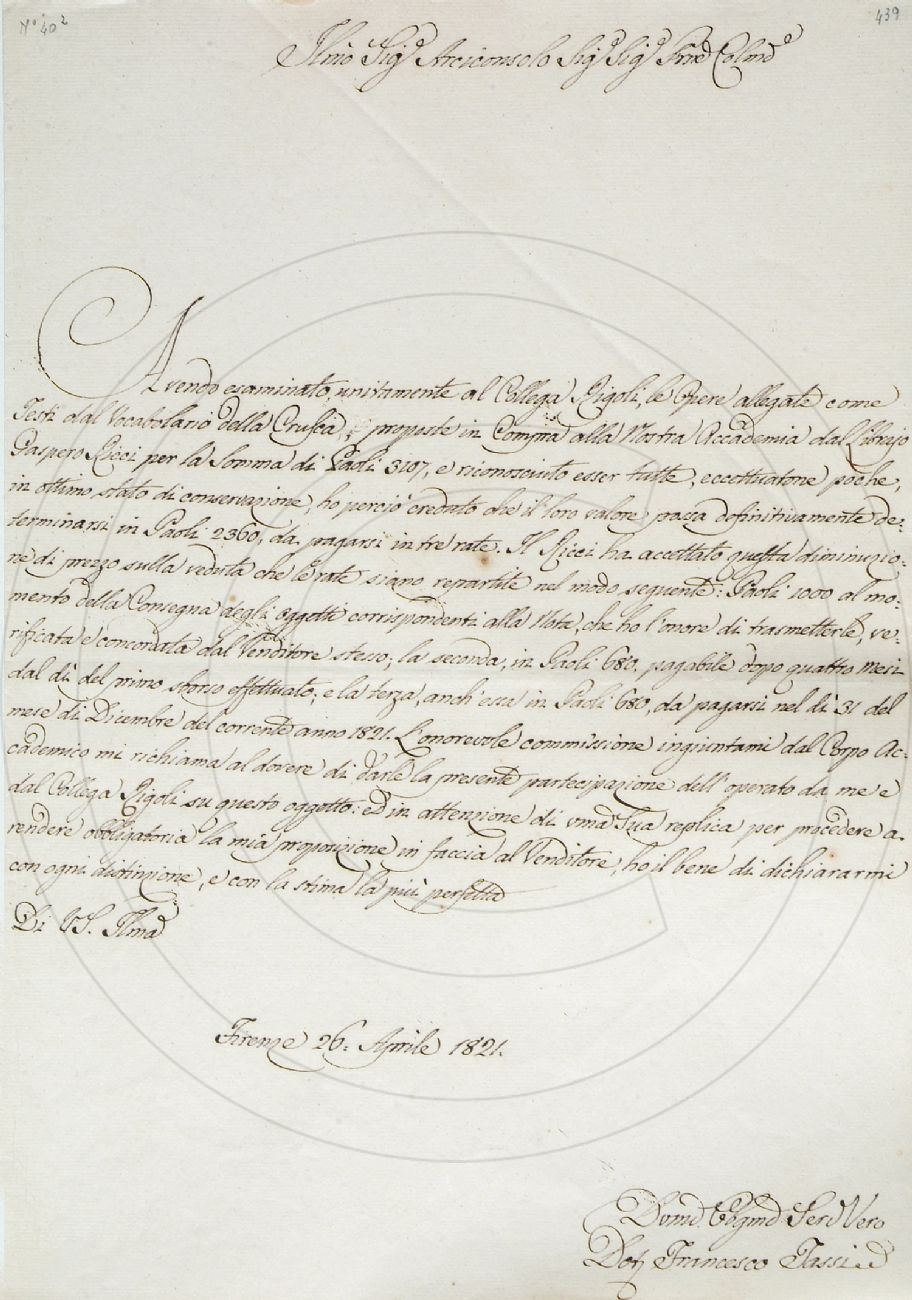 N.° 40²
439
Illmo Sig.e Arciconsolo Sig.e Sig.e Prne Colmo
Avendo esaminato, unitamente al Collega Rigoli, le Opere allegate come
Testi dal Vocabolario della Crusca, e proposte in Compra alla Nostra Accademia dal Librajo
Gaspero Ricci per la Somma di Paoli 3107, e riconosciuto esser tutte, eccettuatone poche,
in ottimo stato di conservazione, ho perciò creduto che il loro valore possa definitivamente de-
terminarsi in Paoli 2360, da pagarsi in tre rate. Il Ricci ha accettato questa diminuzio-
ne di prezzo sulla veduta che le rate siano repartite nel modo seguente: Paoli 1000 al mo-
mento della Consegna degli oggetti corrispondenti alla Nota, che ho l'onore di trasmetterle, ve-
rificata e concordata dal Venditore stesso; la seconda, in Paoli 680. pagabile dopo quattro mesi
dal dì del primo sborso effettuato; e la terza, anch'essa in Paoli 680, da pagarsi nel dì 31 del
mese di Dicembre del corrente anno 1821. L'onorevole commissione ingiuntami dal Corpo Ac-
cademico mi richiama al dovere di darle la presente partecipazione dell'operato da me e
dal Collega Rigoli su questo oggetto: ed in attenzione di una Sua replica per procedere a
rendere obbligatoria la mia proposizione in faccia al Venditore, ho il bene di dichiararmi
con ogni distinzione, e con la stima la più perfetta
Di VS. Illma
Firenze 26. Aprile 1821.
Devmo Obgmo Ser Vero
Dott Francesco Tassi